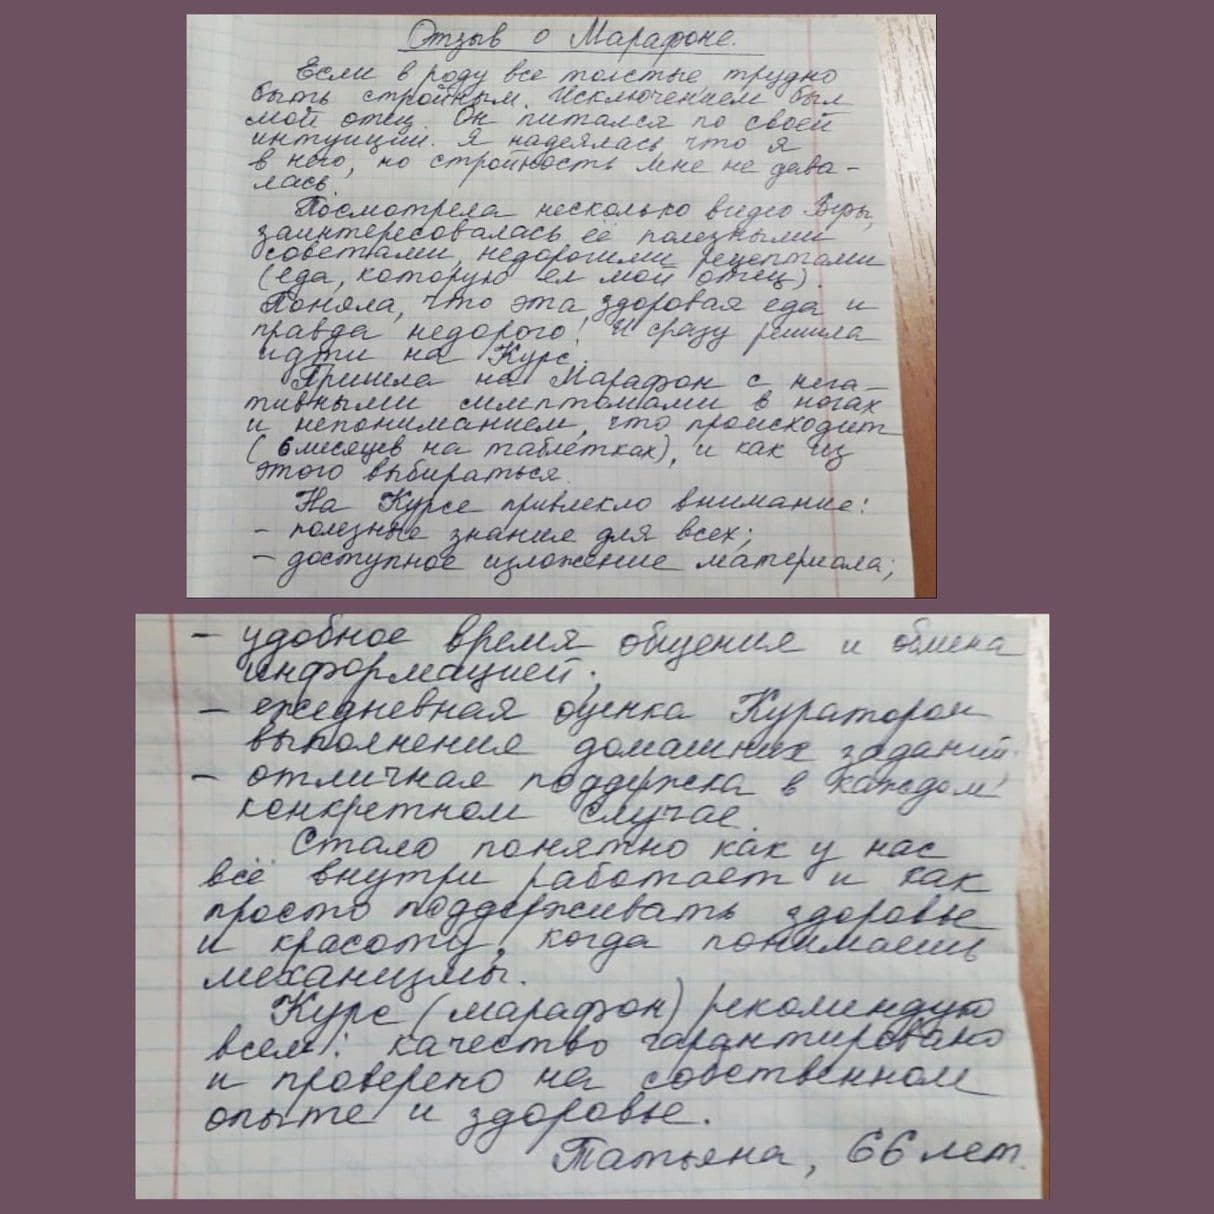 Отзыв о Марафоне.
Если в роду все толстые, трудно
быть стройным. Исключением был
мой отец. Он питался по своей
интуиции. Я надеялась что я
в него, но стройность мне не дава-
лась.
Посмотрела несколько видео Веры,
заинтересовалась её полезными
советами, недорогими рецептами
(еда, которую ел мой отец).
Поняла, что эта здоровая еда и
правда недорого! И сразу решила
идти на Курс.
Пришла на Марафон с нега-
тивными симптомами в ногах
и непониманием, что происходит
(6 месяцев на таблетках), и как из
этого выбираться.
На Курсе привлекло внимание:
- полезные знания для всех;
- доступное изложение материала;
- удобное время общения и обмена
информацией;
- ежедневная оценка Куратором
выполнения домашних заданий.
- отличная поддержка в каждом
конкретном случае.
Стало понятно как у нас
всё внутри работает и как
просто поддерживать здоровье
и красоту, когда понимаешь
механизмы.
Курс (марафон) рекомендую
всем: качество гарантировано
и проверено на собственном
опыте и здоровье.
Татьяна, 66 лет.